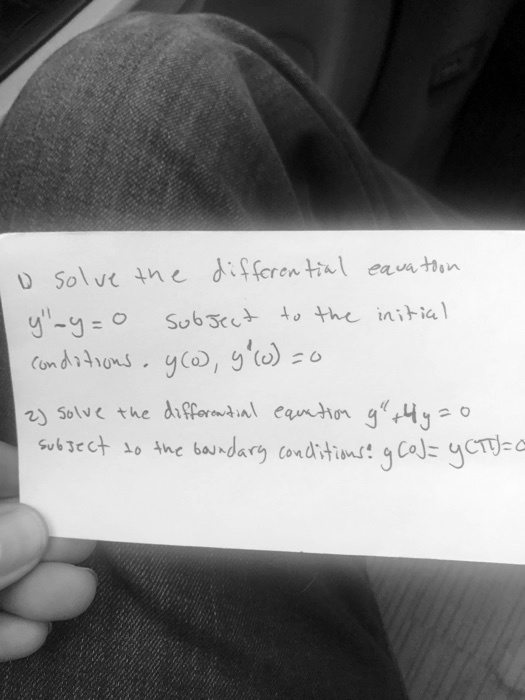 1) Solve the differential equation
y''-y=0 subject to the initial
conditions. y(0), y'(0)=0
2) Solve the differential equation y''+4y=0
subject to the boundary conditions: y(0)= y(π)=0